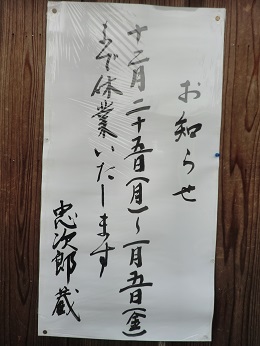 お知らせ
十二月二十五日(月)〜一月五日(金)
まで休業いたします
忠次郎蔵